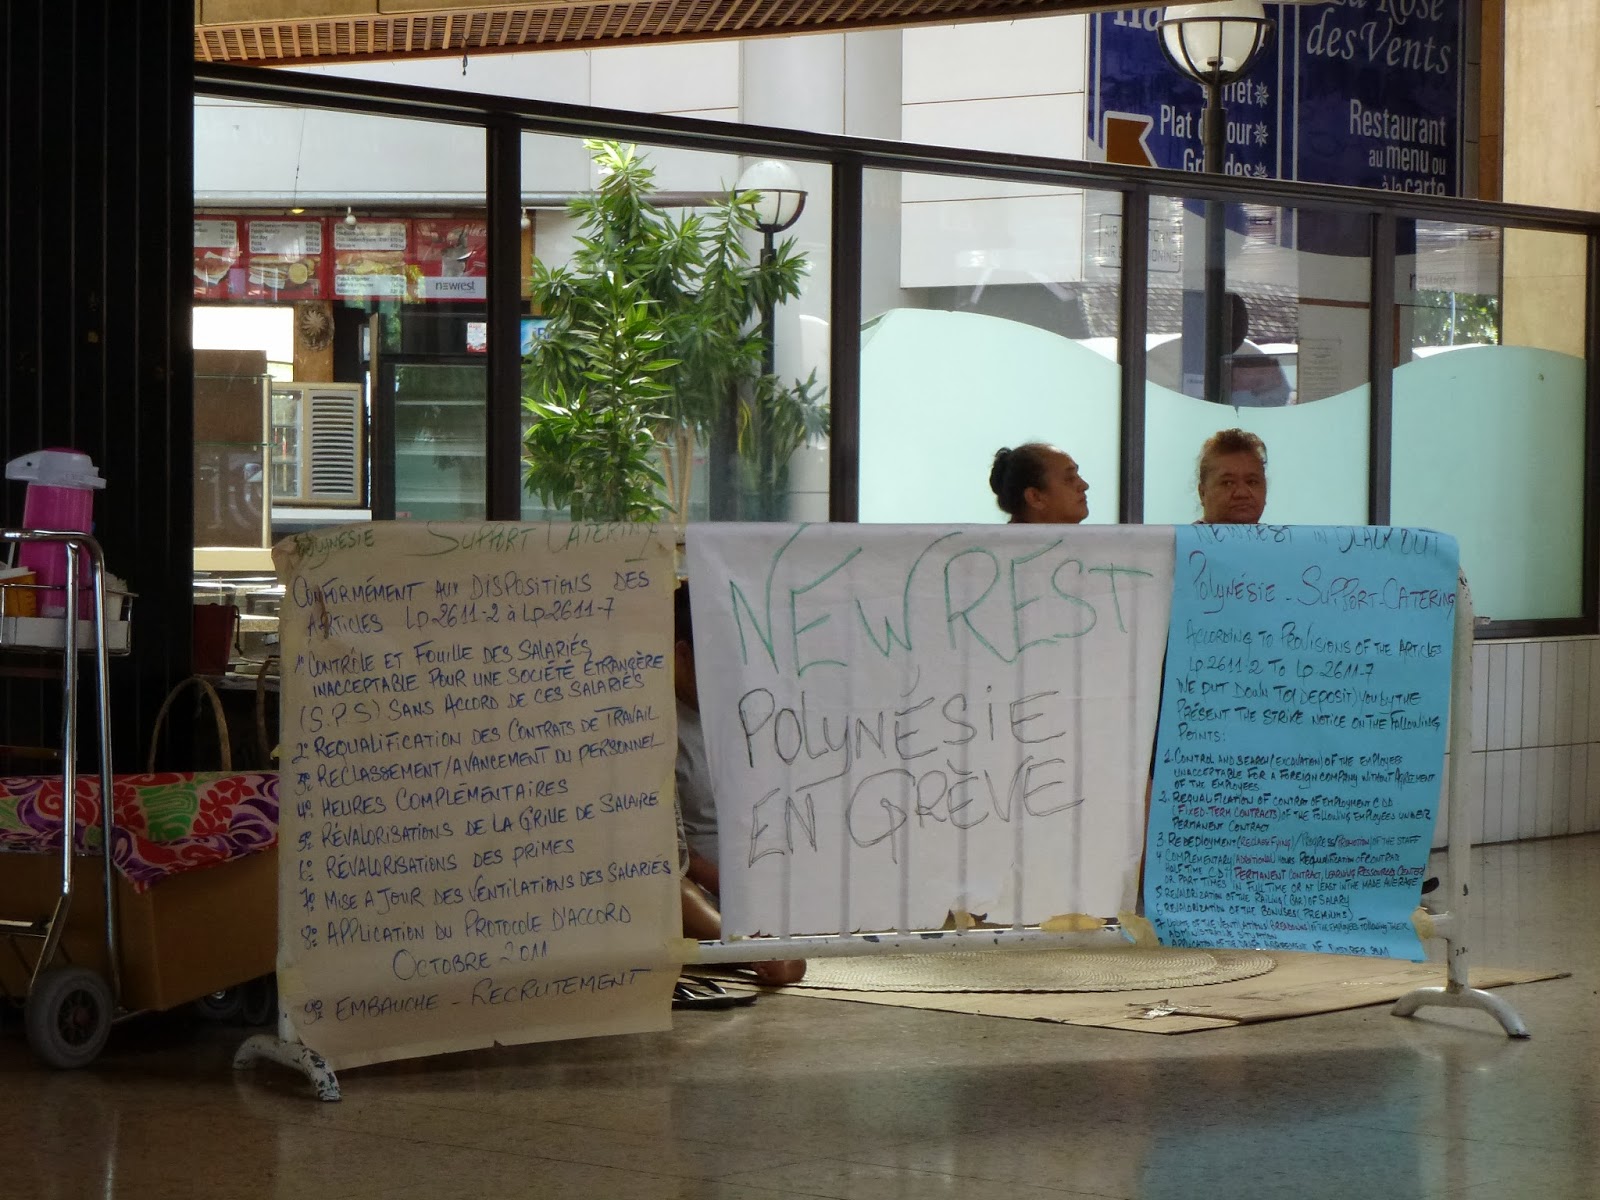 La Rose
des Vents
Plat
Restaurant
au menu ou
à la carte
newrest
POLYNÉSIE SUPPORT CATERING
CONFORMÉMENT AUX DISPOSITIONS DES
ARTICLES LP 2611-2 à LP 2611-7
1° CONTRÔLE ET FOUILLE DES SALARIÉS
INACCEPTABLE POUR UNE SOCIÉTÉ ÉTRANGÈRE
(S.P.S) SANS ACCORD DE CES SALARIÉS
2° REQUALIFICATION DES CONTRATS DE TRAVAIL
3° RECLASSEMENT/AVANCEMENT DU PERSONNEL
4° HEURES COMPLÉMENTAIRES
5° RÉVALORISATIONS DE LA GRILLE DE SALAIRE
6° RÉVALORISATIONS DES PRIMES
7° MISE A JOUR DES VENTILATIONS DES SALARIÉS
8° APPLICATION DU PROTOCOLE D'ACCORD
OCTOBRE 2011
9° EMBAUCHE - RECRUTEMENT
NEWREST
POLYNÉSIE
EN GRÈVE
NEWREST IN BLACK OUT
POLYNÉSIE - SUPPORT-CATERING
ACCORDING TO PROVISIONS OF THE ARTICLES
LP 2611-2 TO LP-2611-7
WE PUT DOWN TO (DEPOSIT) YOU BY THE
PRÉSENT THE STRIKE NOTICE ON THE FOLLOWING
POINTS:
1. CONTROL AND SEARCH (EXCAVATION) OF THE EMPLOYEES
UNACCEPTABLE FOR A FOREIGN COMPANY WITHOUT AGREEMENT
OF THE EMPLOYEES
2. REQUALIFICATION OF CONTRAT OF EMPLOYMENT CDD
(FIXED-TERM CONTRACTS) OF THE FOLLOWING EMPLOYEES UNDER
PERMANENT CONTRACT
3. REDEPLOYMENT (RECLASSIFYING) / PROGRESS (PROMOTION) OF THE STAFF
4. COMPLEMENTARY (ADDITIONAL) HOURS REQUALIFICATION OF CONTRAD
HALF TIME CDI PERMANENT CONTRACT, LEARNING RESSOURCES CENTER
OR PART TIMES IN FULL TIME OR AT LEAST IN THE MADE AVERAGE
5. REVALORIZATION OF THE RAILING (BAR) OF SALARY
6. REVALORIZATION OF THE BONUSES (PREMIUMS)
OF THE EMPLOYEES FOLLOWING THEIR
SITUATION
APPLICATION OF THE